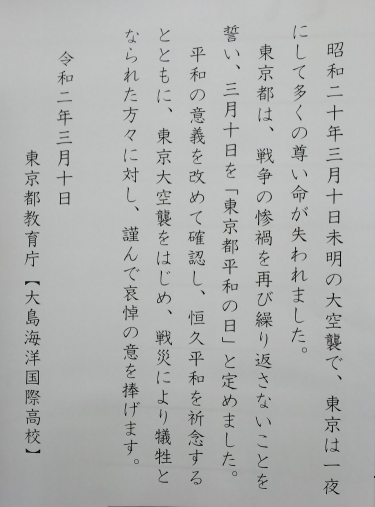 昭和二十年三月十日未明の大空襲で、東京は一夜
にして多くの尊い命が失われました。
東京都は、戦争の惨禍を再び繰り返さないことを
誓い、三月十日を「東京都平和の日」と定めました。
平和の意義を改めて確認し、恒久平和を祈念する
とともに、東京大空襲をはじめ、戦災により犠牲と
なられた方々に対し、謹んで哀悼の意を捧げます。
令和二年三月十日
東京都教育庁【大島海洋国際高校】